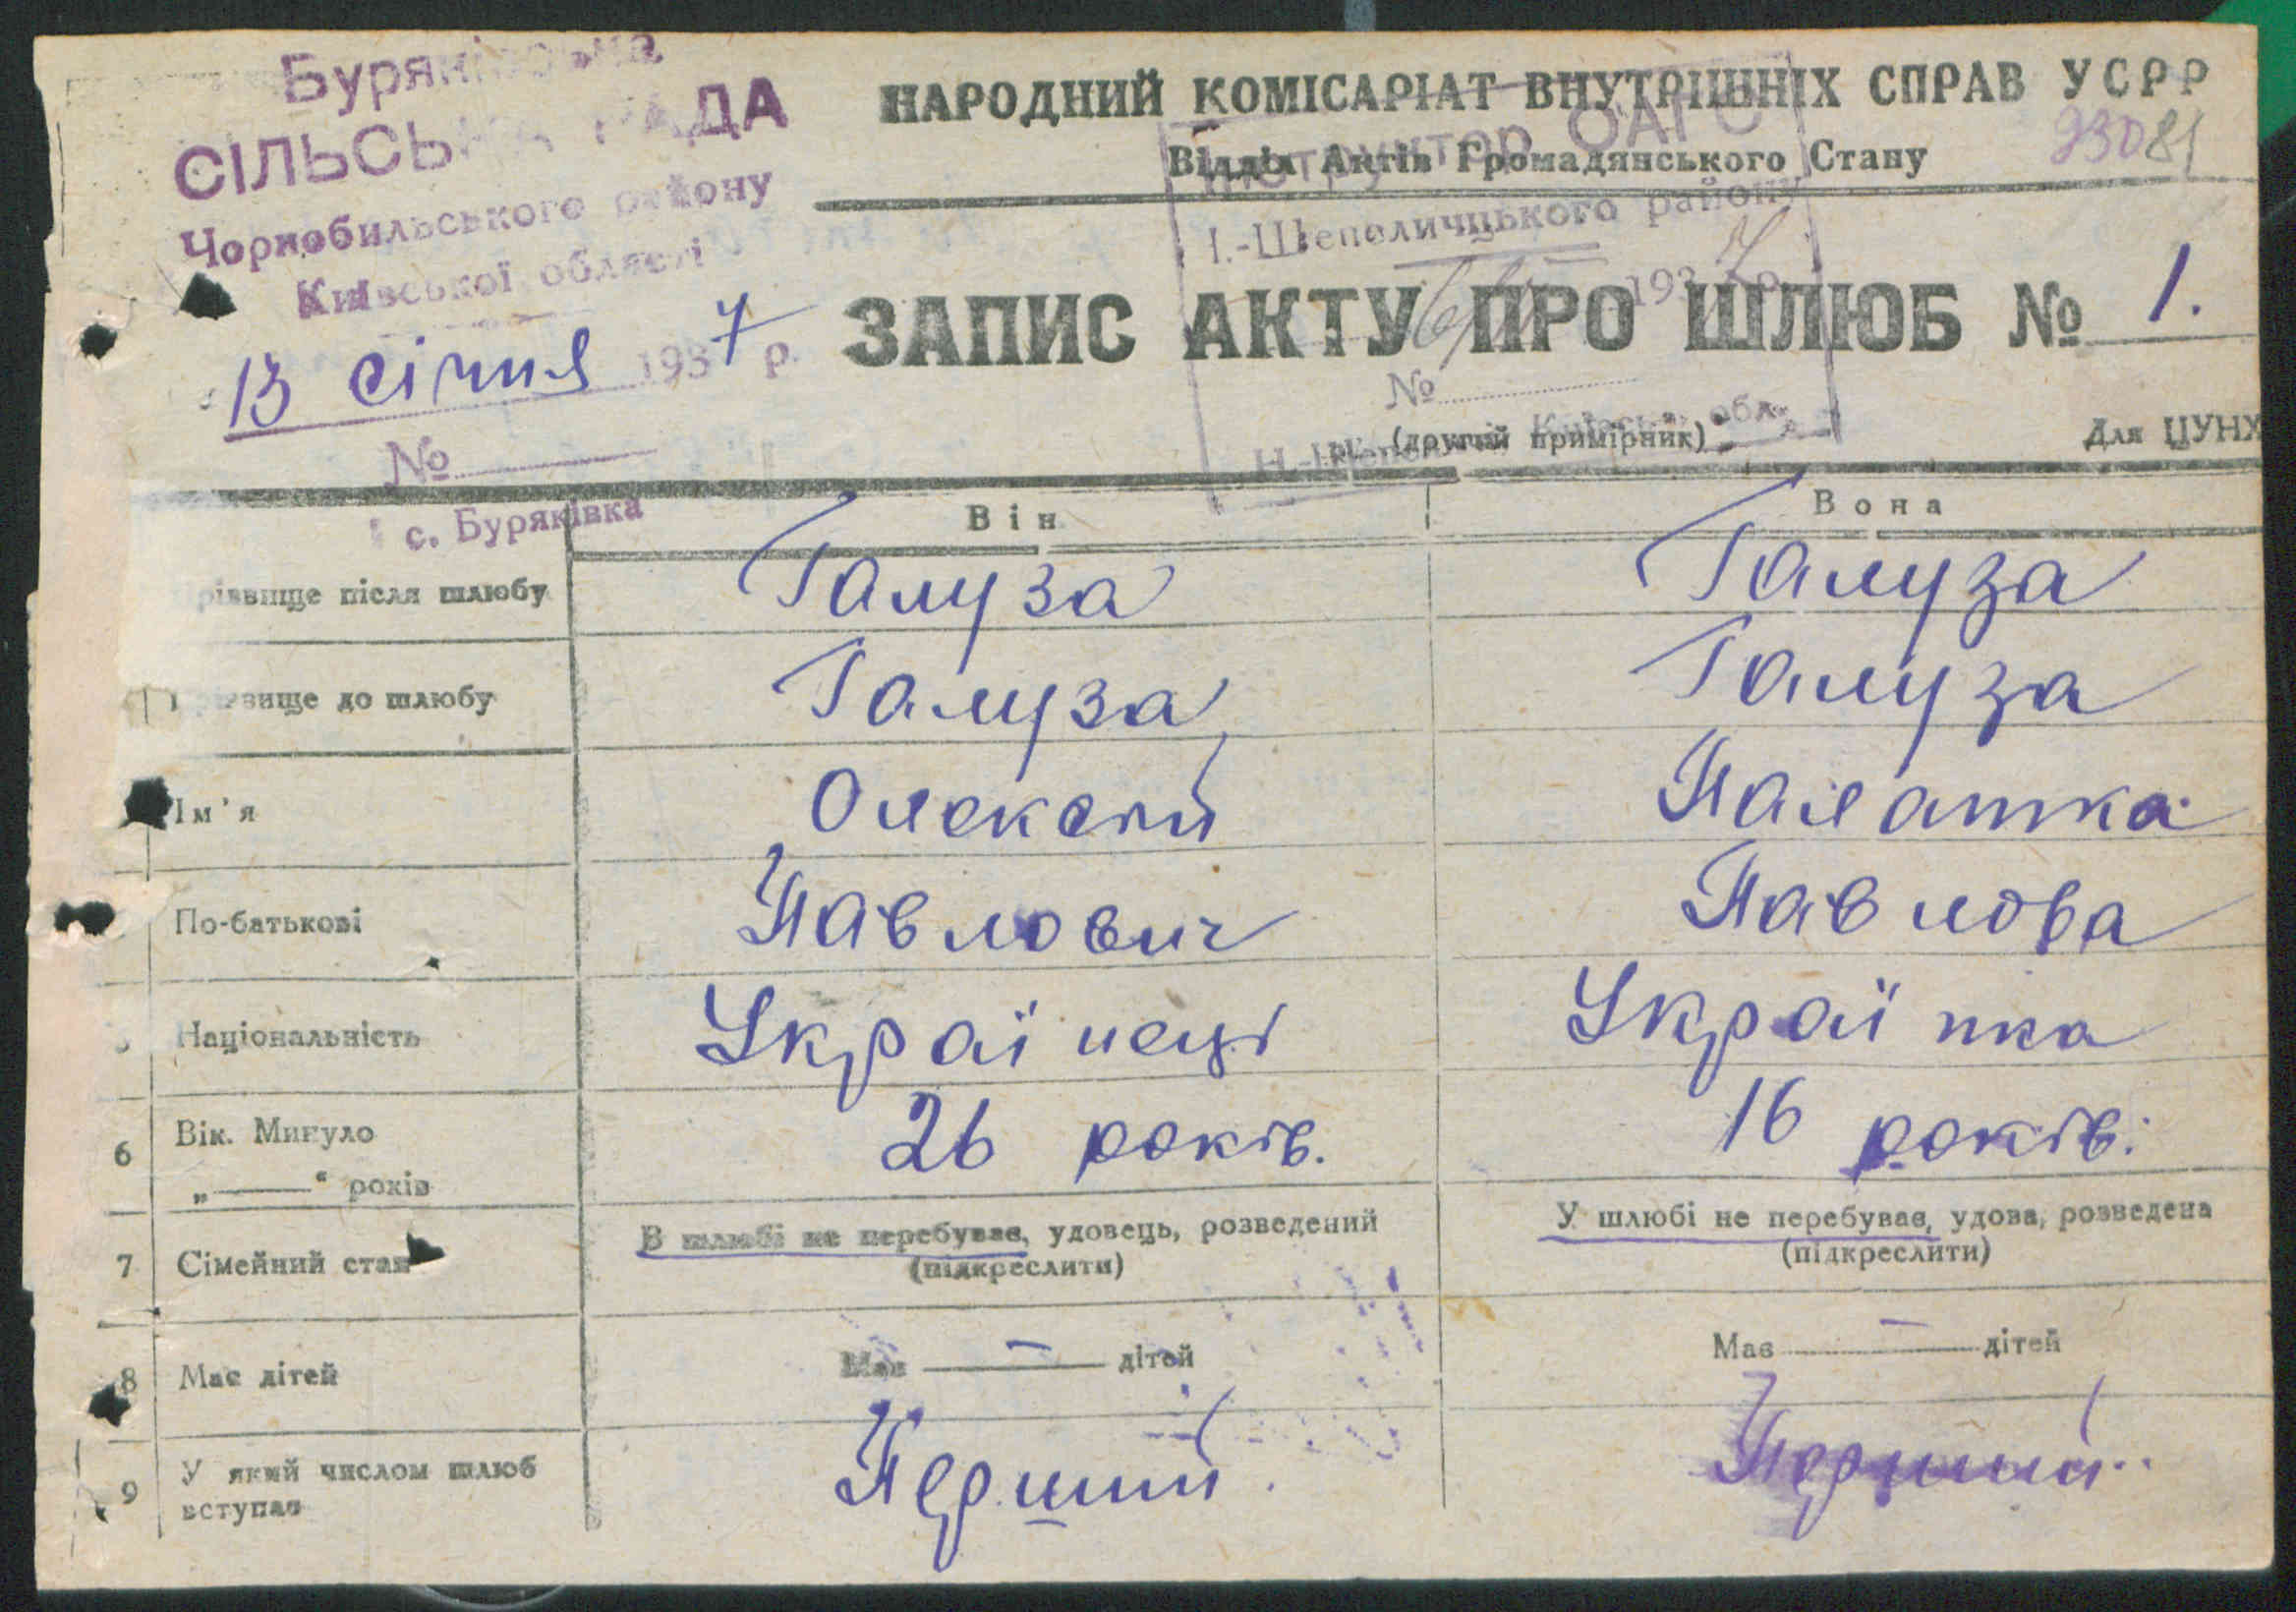 Буряківська
СІЛЬСЬКА РАДА
Чорнобильського району
Київської області
13 січня 1937 р.
№
с. Буряківка
НАРОДНИЙ КОМІСАРІАТ ВНУТРІШНІХ СПРАВ УСРР
Відділ Актів Громадянського Стану
Інструктор ОАГС
І.-Шепеличцького району
1937 р.
№
ЗАПИС АКТУ ПРО ШЛЮБ № 1.
(другий примірник)
Для ЦУНХ
Він Вона
Прізвище після шлюбу Галуза Галуза
Прізвище до шлюбу Галуза Галуза
Ім'я Олексій Палашка
По-батькові Павлович Павлова
Національність Українець Українка
6 Вік. Минуло 26 років. 16 років.
„——“ років
7 Сімейний стан В шлюбі не перебував, удовець, розведений У шлюбі не перебував, удова, розведена
(підкреслити) (підкреслити)
8 Має дітей Має — дітей Має — дітей
9 У який числом шлюб вступає Перший. Перший.